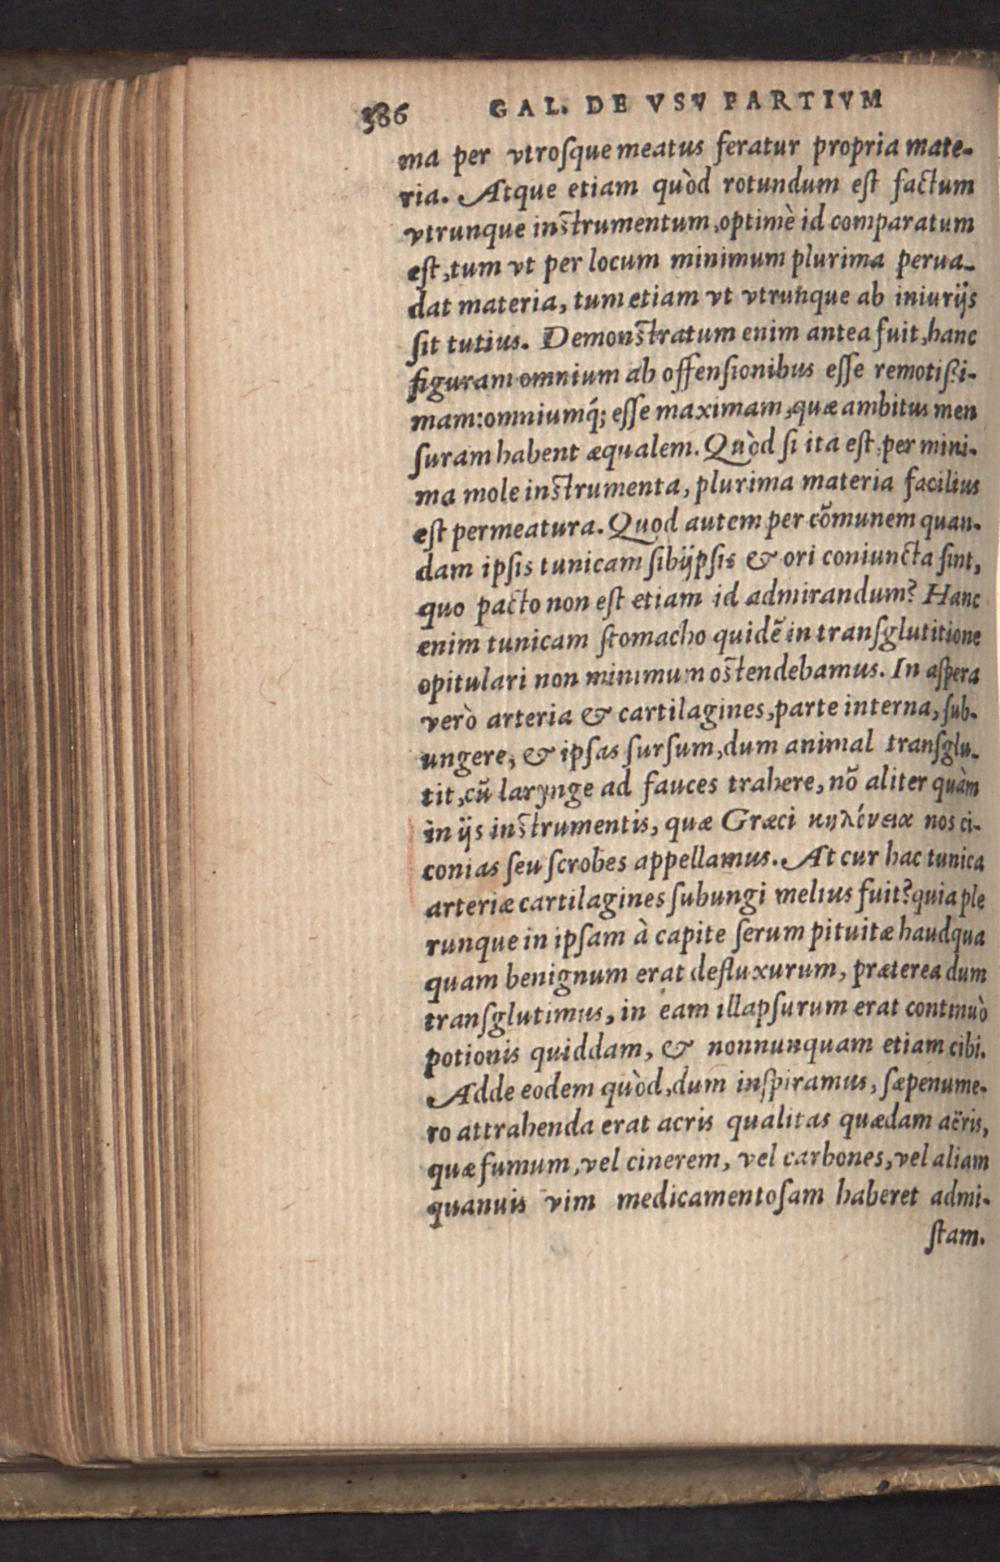 386 GAL. DE VSV PARTIVM
ma per vtroſque meatus feratur propria mate-
ria. Atque etiam quòd rotundum eſt factum
vtrunque inſtrumentum, optimè id comparatum
eſt, tum vt per locum minimum plurima perua-
dat materia, tum etiam vt vtrunque ab iniurijs
ſit tutius. Demonſtratum enim antea fuit, hanc
figuram omnium ab offenſionibus eſſe remotiſſi-
mam: omniumq́; eſſe maximam, quæ ambitus men
ſuram habent æqualem. Quòd ſi ita eſt, per mini-
ma mole inſtrumenta, plurima materia facilius
eſt permeatura. Quod autem per cõmunem quan-
dam ipſis tunicam ſibijpſis & ori coniuncta ſint,
quo pacto non eſt etiam id admirandum? Hanc
enim tunicam ſtomacho quidẽ in tranſglutitione
opitulari non minimum oſtendebamus. In aſpera
verò arteria & cartilagines, parte interna, ſub-
ungere, & ipſas ſurſum, dum animal tranſglu-
tit, cũ larynge ad fauces trahere, nõ aliter quàm
in ijs inſtrumentis, quæ Græci κηλώνεια nos ci-
conias ſeu ſcrobes appellamus. At cur hac tunica
arteriæ cartilagines ſubungi melius fuit? quia ple
runque in ipſam à capite ſerum pituitæ haudqua
quam benignum erat defluxurum, præterea dum
tranſglutimus, in eam illapſurum erat continuò
potionis quiddam, & nonnunquam etiam cibi.
Adde eodem quòd, dum inſpiramus, ſæpenume-
ro attrahenda erat acris qualitas quædam aëris,
quæ fumum, vel cinerem, vel carbones, vel aliam
quanuis vim medicamentoſam haberet admi-
ſtam.